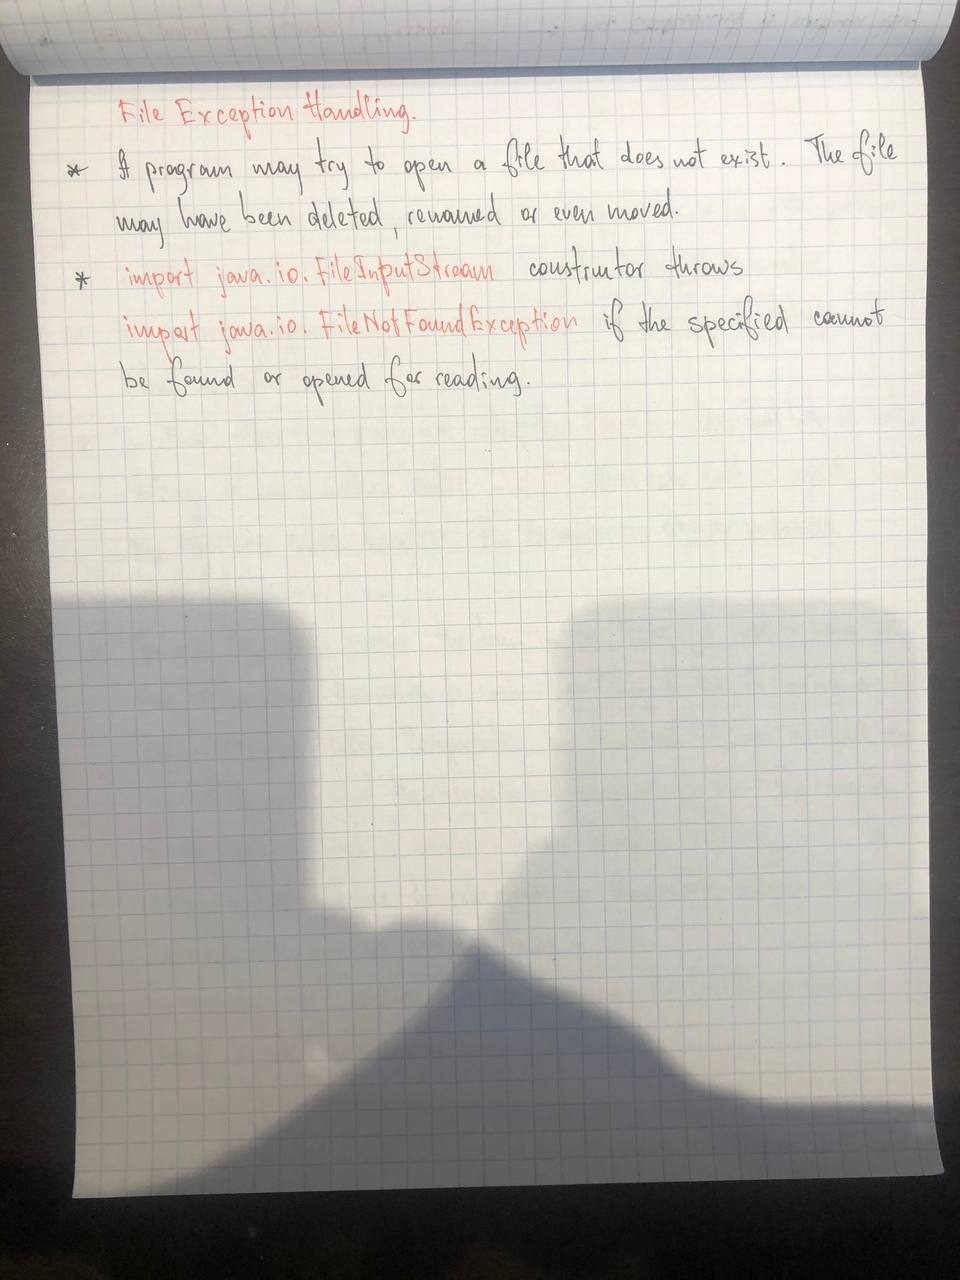 File Exception Handling.
* A program may try to open a file that does not exist. The file
may have been deleted, renamed or even moved.
* import java.io.FileInputStream constructor throws
import java.io.FileNotFoundException if the specified cannot
be found or opened for reading.